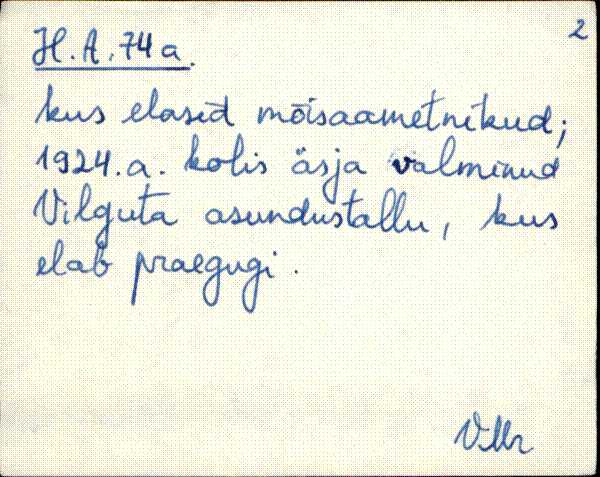 2
H.A. 74 a.
kus elasid mõisaametnikud;
1924.a. kolis äsja valminud
Vilguta asundustallu, kus
elab praegugi.